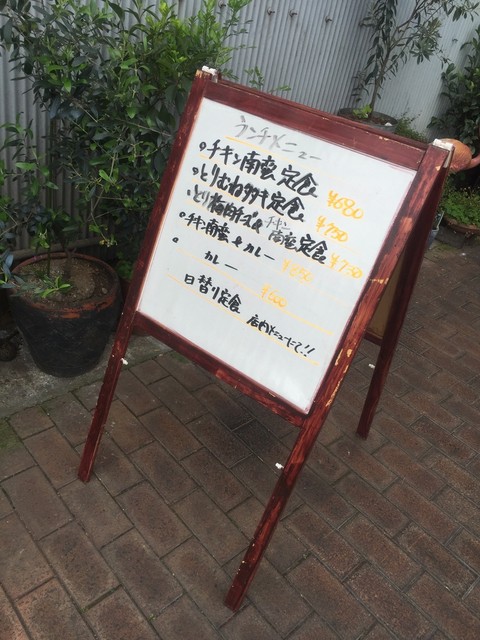 ランチメニュー
•チキン南蛮定食 ¥680
•とりむねタタキ定食 ¥750
•とり梅肉チーズ& チキン南蛮定食 ¥750
•チキン南蛮&カレー
• カレー ¥500
日替り定食 店内メニューにて!!